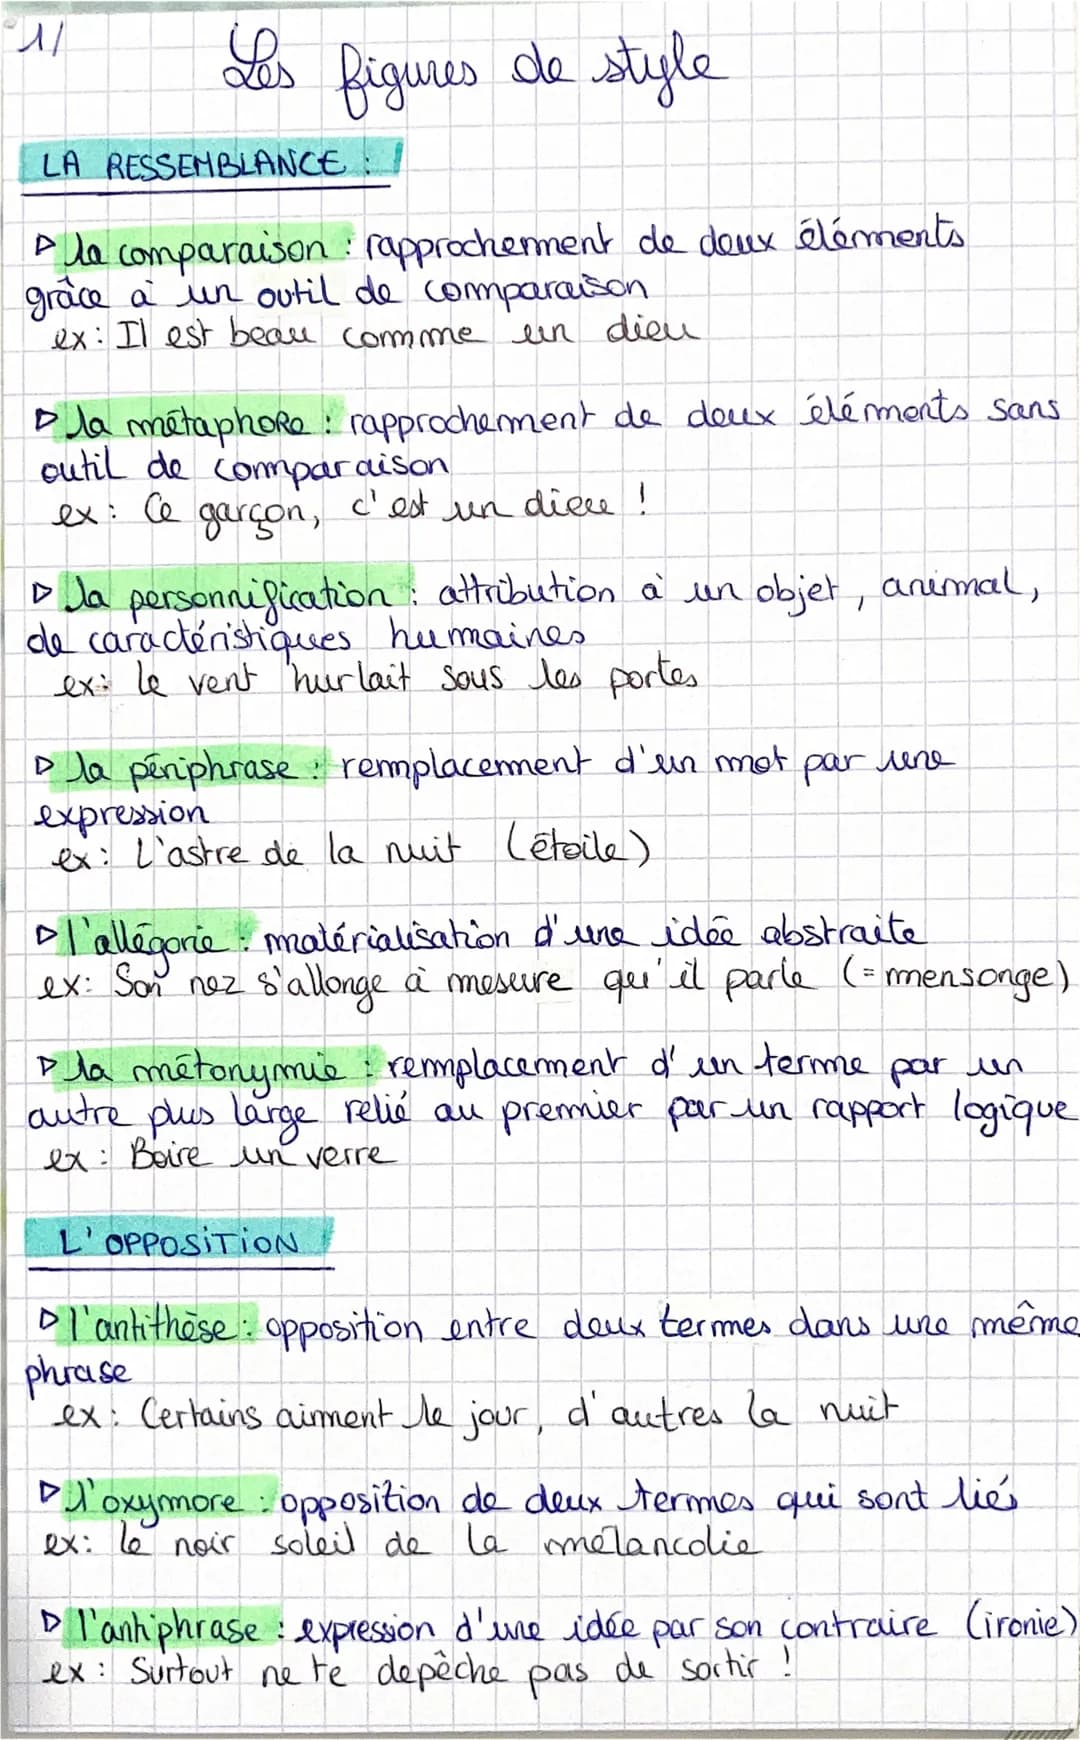 1/
Les figures de style
LA RESSEMBLANCE :
▷ la comparaison : rapprochement de deux éléments
grâce à un outil de comparaison
ex : Il est beau comme un dieu
▷ la métaphore : rapprochement de deux éléments sans
outil de comparaison
ex : Ce garçon, c'est un dieu !
▷ la personnification : attribution à un objet, animal,
de caractéristiques humaines
ex : le vent hurlait sous les portes
▷ la périphrase : remplacement d'un mot par une
expression
ex : L'astre de la nuit (étoile)
▷ l'allégorie : matérialisation d'une idée abstraite
ex : Son nez s'allonge à mesure qu'il parle (= mensonge)
▷ la métonymie : remplacement d'un terme par un
autre plus large relié au premier par un rapport logique
ex : Boire un verre
L'OPPOSITION
▷ l'antithèse : opposition entre deux termes dans une même
phrase
ex : Certains aiment le jour, d'autres la nuit
▷ l'oxymore : opposition de deux termes qui sont liés
ex : le noir soleil de la mélancolie
▷ l'antiphrase : expression d'une idée par son contraire (ironie)
ex : Surtout ne te depêche pas de sortir !